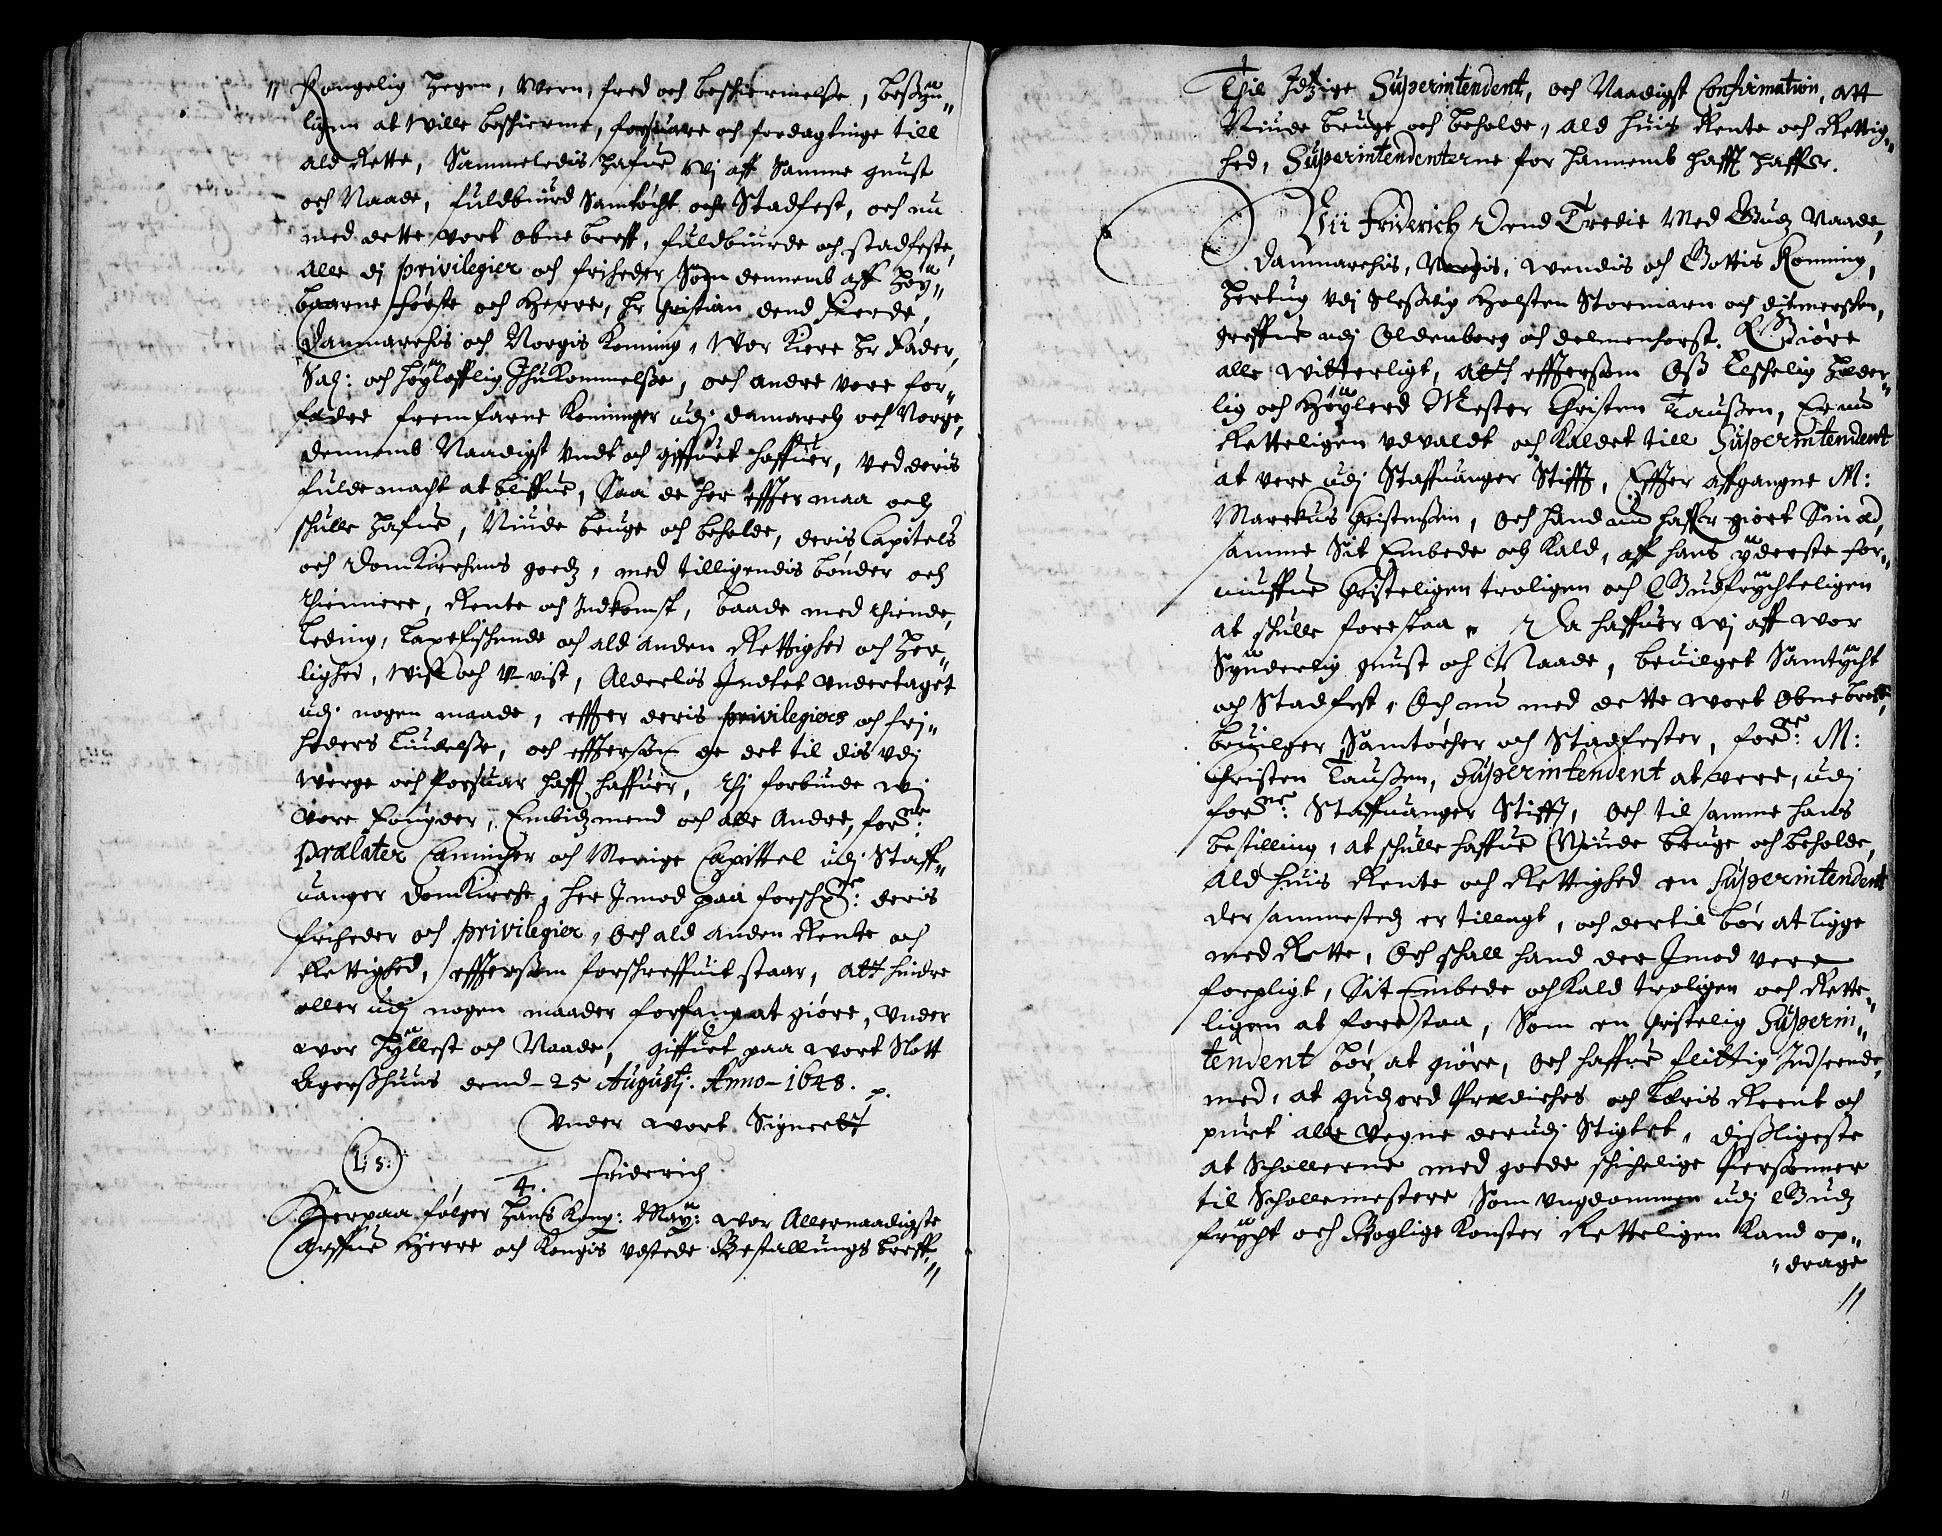 " Kongelig Hegen, Wern, fred och beschiermelsse, besszn„
ligen at wille beschierme, forsuare och fordagtinge till
ald Rette, Sammeledis hafue wj aff samme gunst
och Naade, fuldbiurd samtöcht och Stadfest, och nu
med dette vort obne breff, fuldbiurde och stadfeste,
alle dj privilegier och friheder Som dennem aff Höy„
baarne Förste och Herre, Hr Christian dend Fierde,
Danmarchis och Norgis Konning, Wor Kiere Hr Fader,
Sal: och Höyloflig Ihukommelsse, och andre vore for„
fædre fremfarne Koninger udj Damarch och Norge,
dennem Naadigst undt och giffuet haffuer, ved deris
fulde macht at bliffue, Saa de her effter maa och
schulle hafue, Niude bruge och beholde, deris Capitels
och DomKirchens goedz, med tilligendis bönder och
thiennere, Rente och Indkomst, baade med thiende,
Leding, Laxefischende och ald anden Rettighed och Her„
lighed, wist och u-vist, Alderlös Indtet undertaget
udj nogen maade, effter deris privilegiers och fri„
heders liudelsse, och effttersom de det til dis udj
werge och forsuar hafft haffuer, thj forbiude wj
vore Fougder, Embidzmend och alle Andre, forne:
Prælater Canicher och Menige Capittel udj Staff„
uanger DomKirche, her Imod paa forschrne: deris
friheder och privilegier, Och ald anden Rente och
Rettighed, effttersom forschreffuit staar, att hindre
eller udj nogen maader forfang at giöre, under
wor Hyllest och Naade, giffuet paa wort Slott
Agersshuus dend - 25 Augustj: Anno - 1648.
Under wort Signeett
L: S:
Friderich
4.
Herpaa fölger Hans Kong: May: wor Allernaadigste
Arffue Herre och Kongis udstede Bestallungs breff„
Til Itzige Superintendent, och Naadigst Confirmation, att
Niude bruge och beholde, ald huis Rente och Rettig„
hed, Superintendenterne for hannemb hafft haffer.
Wii Friderich Dend Tredie Med Gudz Naade,
Danmarchis, Norgis, Wendis och Gottis Konning,
Hertug udj Slesswig Holsten Stormarn och Ditmersken,
greffue udj Oldenborg och Delmenhorst. Giöre
alle witterligt, att effttersom Oss Elschelig Hæder„
lig och Höylerd Mester Christen Taussen, Er nu
Retteligen udvaldt och Kaldet till Superintendent
at vere udj Staffuanger Stifft, Effter affgangne M:
Marckus Christenssen, Och hand nu haffer giort Sin æd,
samme Sit Embede och Kald, aff hans yderste for„
muffue Christeligen troligen och Gudfrychteligen
at schulle forestaa, Da haffuer wj aff wor
Synderlig gunst och Naade, beuilget Samtycht
och Stadfest, Och nu med dette wort obne breff,
beuilger Samtöcher och Stadfester, forne: M:
Christen Taussen, Superintendent at vere, udj
forne: Staffuanger Stifft, Och til samme hans
bestilling, at schulle haffue Niude bruge och beholde,
Ald huis Rente och Rettighed en Superintendent
der sammestedz er tillagt, och dertil bör at ligge
med Rette, Och schall hand der Imod vere
forpligt, Sit Embede och Kald troligen och Rette„
ligen at forestaa, Som en Christelig Superin„
tendent bör at giöre, Och haffue flittig Indseende,
med, at gudz ord Prædiches och Læris Reent och
purt alle Vegne derudj Stigtet, dissligeste
at Schollerne med goede schichelige Personner
til Scholemestere Som ungdommen udj Gudz
frycht och Boglige Konster Retteligen Kand op„
" drage